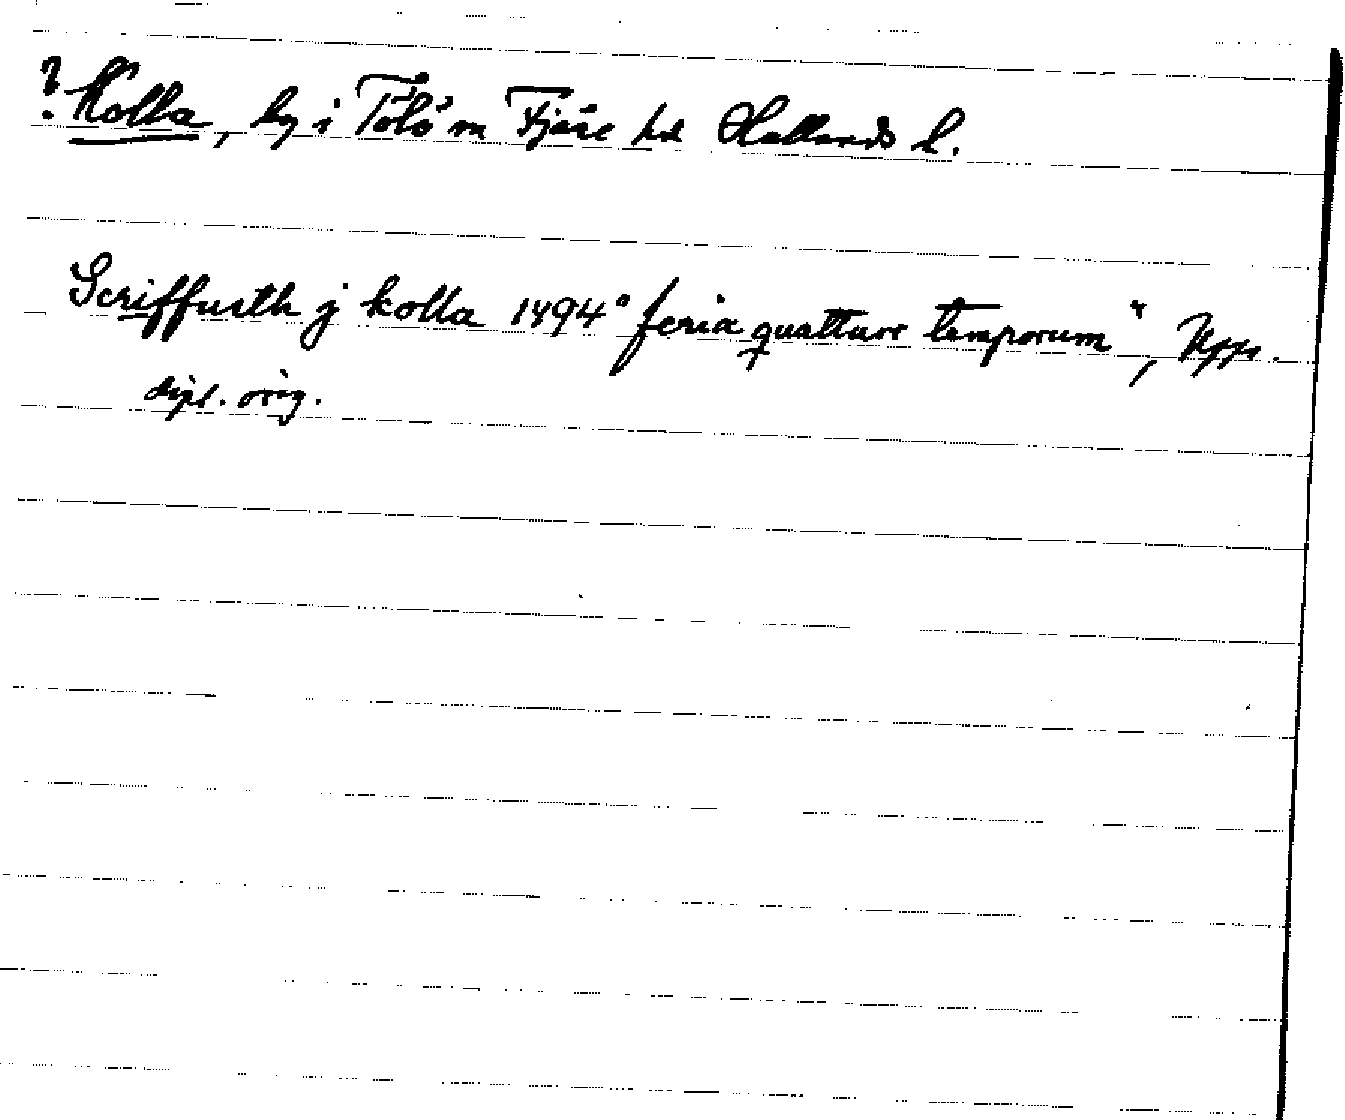 ? Kolla, by i Tölö sn Fjäre hd Hallands l.
Scriffuith j kolla 1494 "feria quattuor temporum", Upps.
dipl. orig.